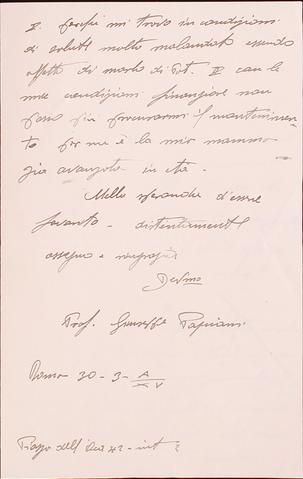 II. perché mi trovo in condizioni
di salute molto malandate essendo
affetto di morbo di Pot. II con le
mie condizioni finanziarie non
posso più procurarmi il mantenimen-
to per me e la mia mamma
già avanzata in età.
Nella speranza d'essere
favorito - distintamente
ossequio e ringrazio
Devmo
Prof. Giuseppe
Roma 30 - 3 - A XV
Piazza dell' 42 - int